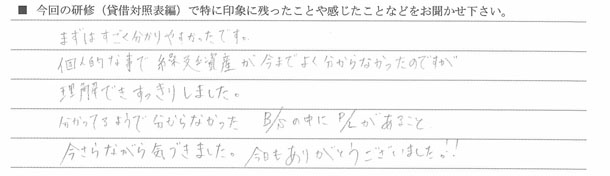 ■ 今回の研修（貸借対照表編）で特に印象に残ったことや感じたことなどをお聞かせ下さい。
まずはすごく分かりやすかったです。
個人的な事で繰延資産が今までよく分からなかったのですが
理解できすっきりしました。
分かってるようで分からなかった B/Sの中にP/Lがあること
今さらながら気づきました。今日もありがとうございました!!